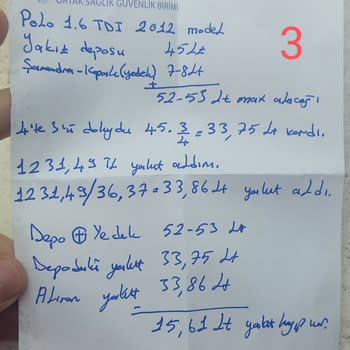 ORTAK SAĞLIK GÜVENLİK BİRİMİ
3
Polo 1.6 TDI 2012 model
Yakıt deposu 45 Lt
Şamandıra-Kapak (yedek) 7-8 Lt
+
52-53 Lt max alacağı
4'te 3'ü doluydu 45.3/4 = 33,75 Lt vardı.
1231,49 TL yakıt aldım.
1231,49/36,37=33,86 Lt yakıt aldı.
Depo ⊕ Yedek 52-53 Lt
Depodaki yakıt 33,75 Lt
Alınan yakıt 33,86 Lt
-
15,61 Lt yakıt kayıp var.